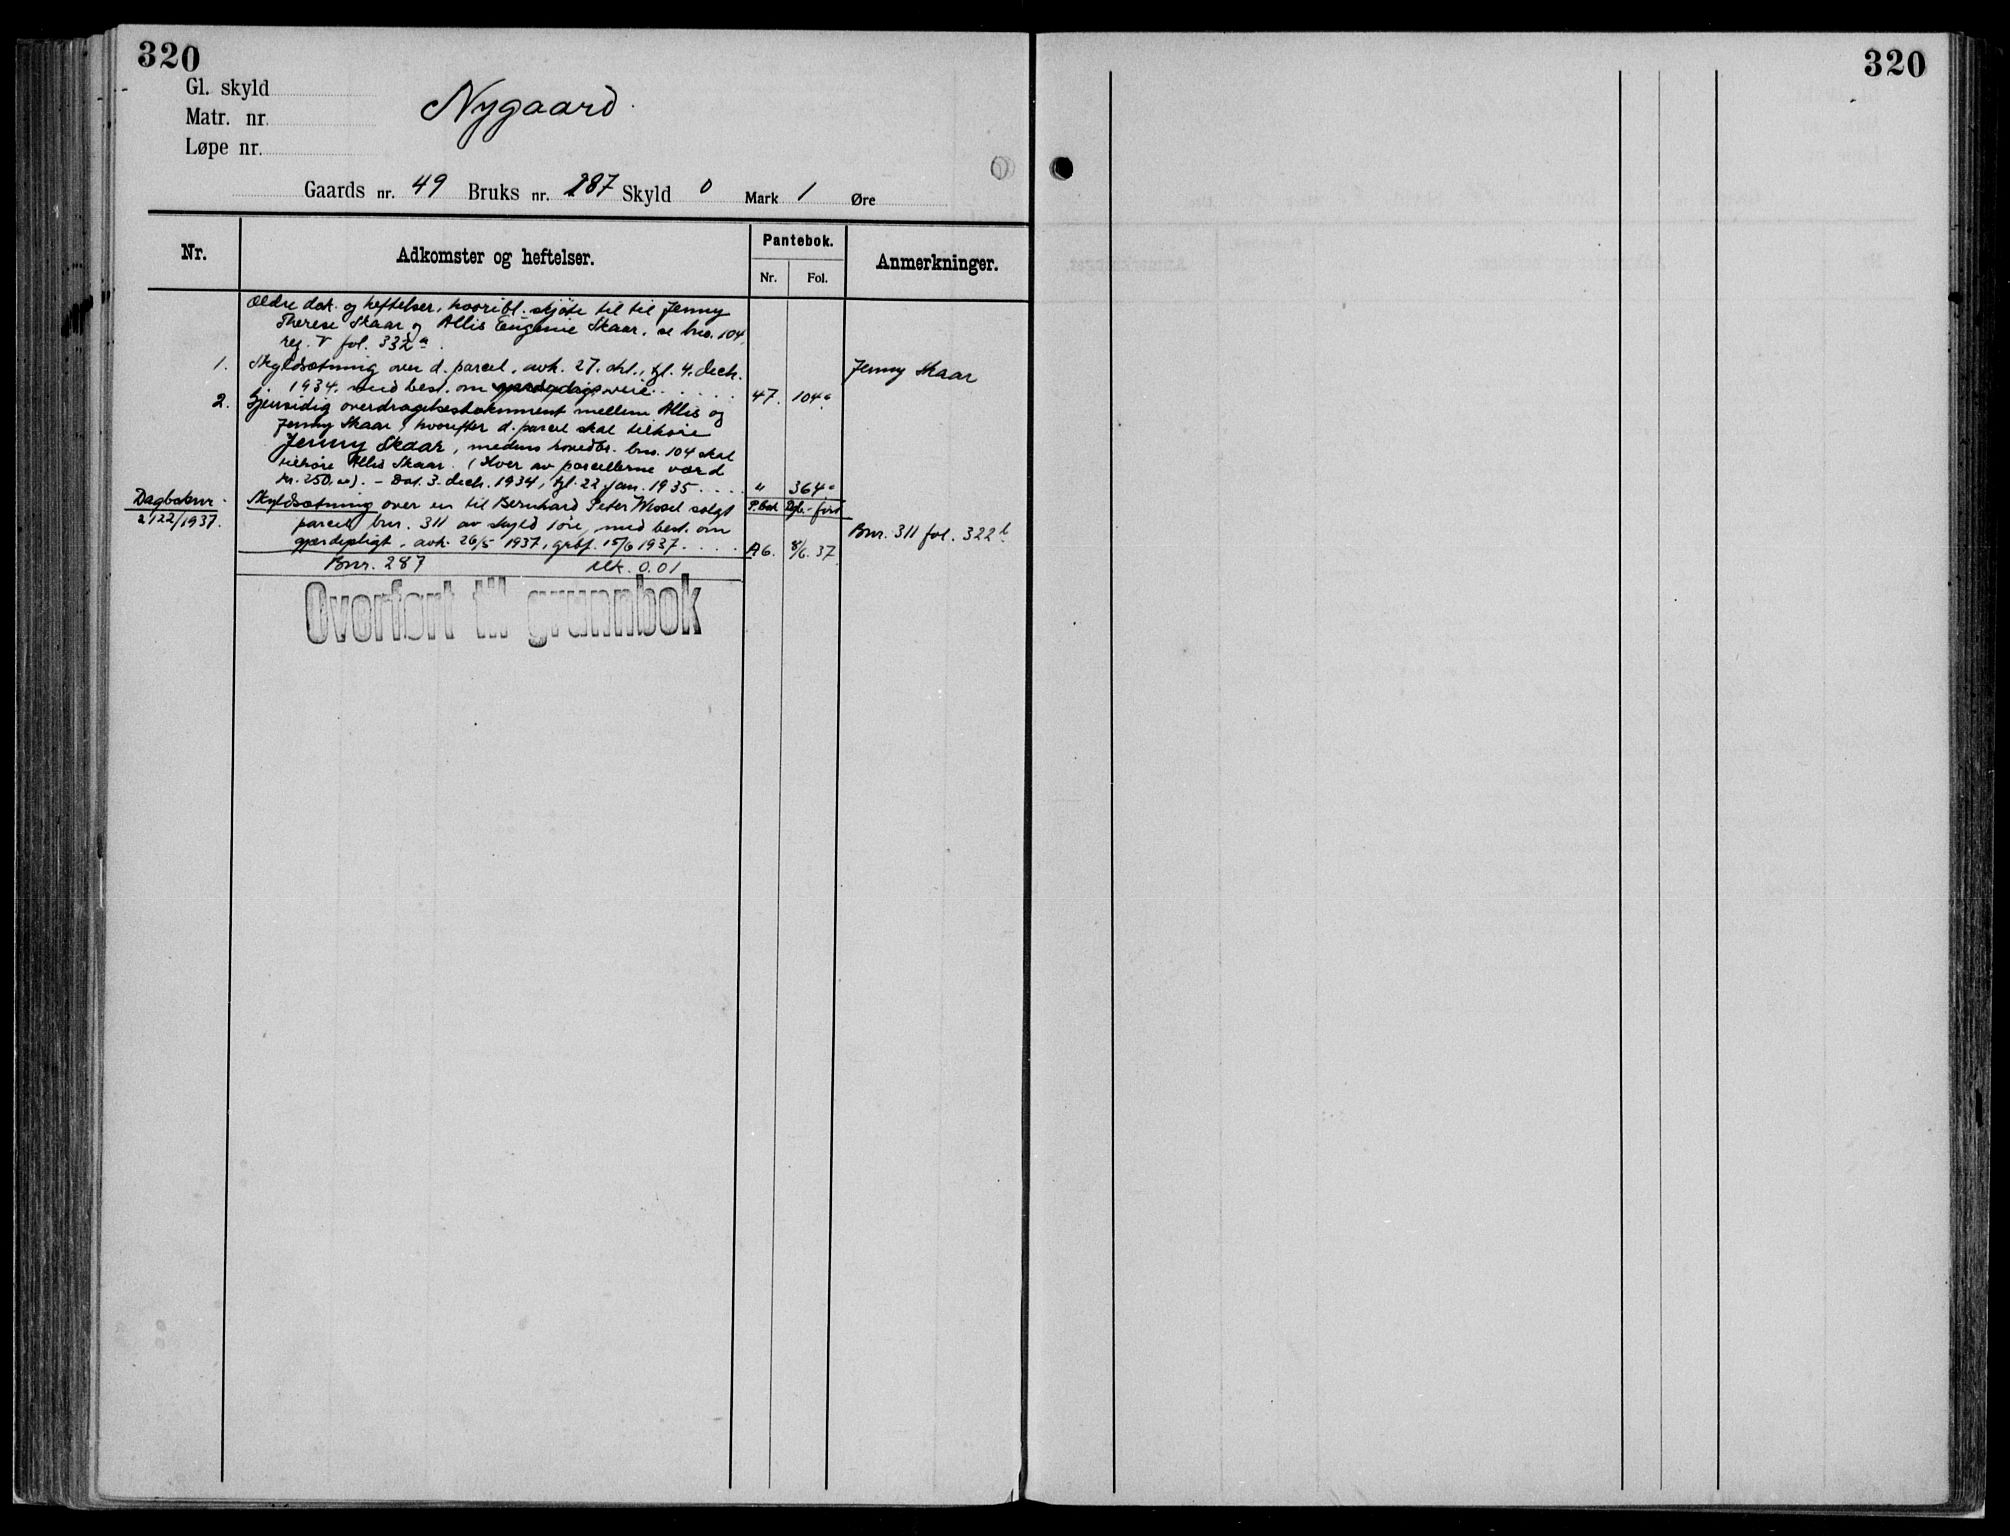 320
320
Gl. skyld
Matr. nr.
Løpe nr.
Nygaard.
Gaards nr. 49 Bruks nr. 287 Skyld 0 Mark 1 Øre
Nr. Adkomster og heftelser. Pantebok. Anmerkninger.
Nr. Fol.
Ældre dok. og heftelser, hvoribl. skjøte til til Jenny
Therese Skaar og Allis Eugenie Skaar, se bno. 104,
reg. V fol. 332a.
1. Skyldsætning over d. parcel, avh. 27. okt., tgl. 4. decb. Jenny Skaar
1934, med best. om veie. . . . . . 47. 104a
2. Gjensidig overdragelsesdokument mellem Allis og
Jenny Skaar, hvorefter d. parcel skal tilhøre
Jenny Skaar, medens hovedbr. bno. 104 skal
tilhøre Allis Skaar. (Hver av parcellerne værd
kr. 250,00). - Dat. 3. decb. 1934, tgl. 22 jan. 1935. . . . . " 364a
Dagboknr. Skyldsætning over en til Bernhard Peter Wessel solgt P.bok Dgb.-ført
2122/1937. parcel, bnr. 311 av skyld 1 øre, med best. om Bnr. 311 fol. 322b
gjærdepligt, avh. 26/5 1937, grbf. 15/6 1937. . . . . A6. 8/6. 37
Bnr. 287 Mk. 0.01
Overført til grunnbok